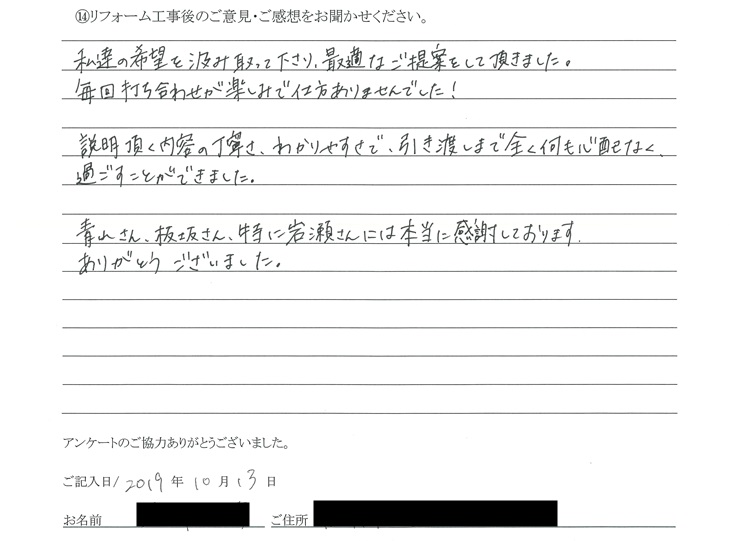 ⑭リフォーム工事後のご意見・ご感想をお聞かせください。
私達の希望を汲み取って下さり、最適なご提案をして頂きました。
毎回打ち合わせが楽しみで仕方ありませんでした！
説明頂く内容の丁寧さ、わかりやすさで、引き渡しまで全く何も心配なく、
過ごすことができました。
青山さん、板坂さん、特に岩瀬さんには本当に感謝しております。
ありがとうございました。
アンケートのご協力ありがとうございました。
ご記入日/ 2019 年 10 月 13 日
お名前 ご住所